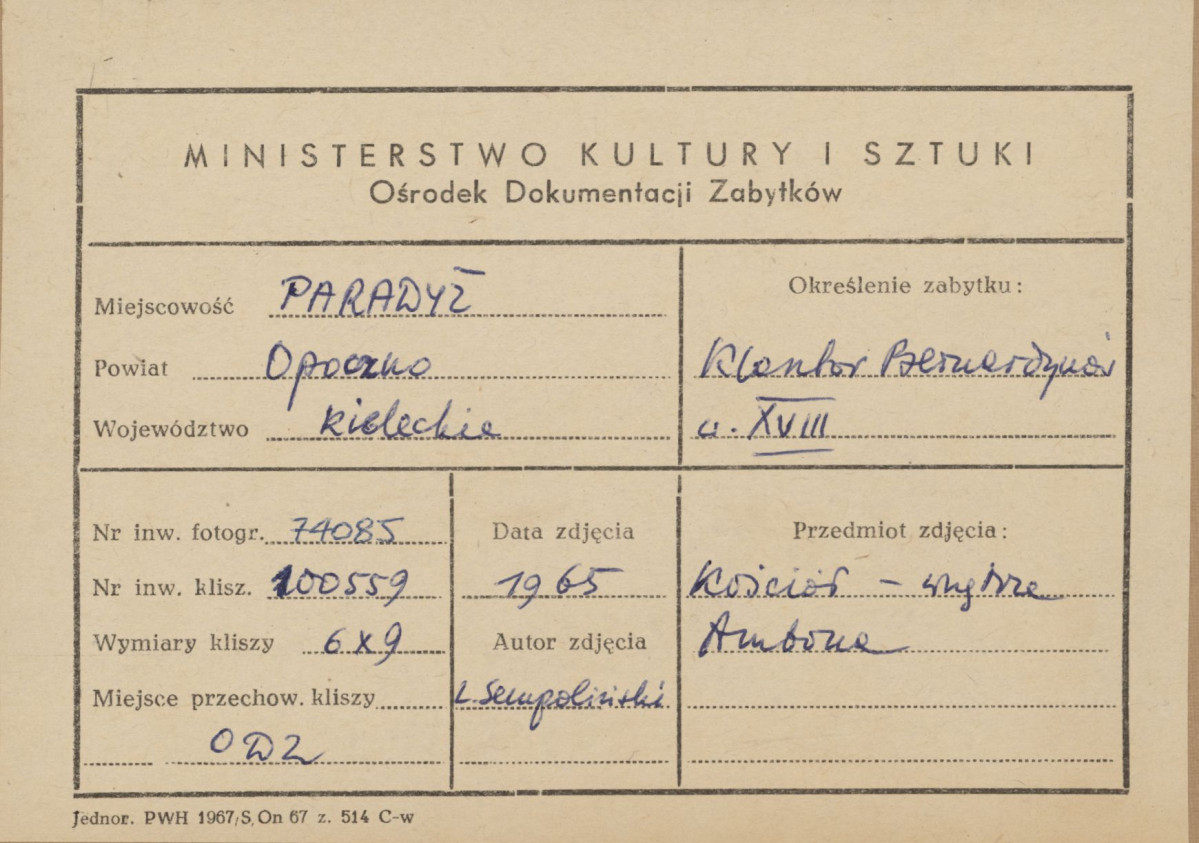 MINISTERSTWO KULTURY I SZTUKI
Ośrodek Dokumentacji Zabytków
Miejscowość PARADYŻ
Powiat Opoczno
Województwo kieleckie
Określenie zabytku:
Klasztor Bernardynów
w. XVIII
Nr inw. fotogr. 74085
Nr inw. klisz. 100559
Wymiary kliszy 6x9
Miejsce przechow. kliszy
ODZ
Data zdjęcia
1965
Autor zdjęcia
L. Sempoliński
Przedmiot zdjęcia:
Kościół – wnętrze
Ambona
Jednor. PWH 1967/S, On 67 z. 514 C-w